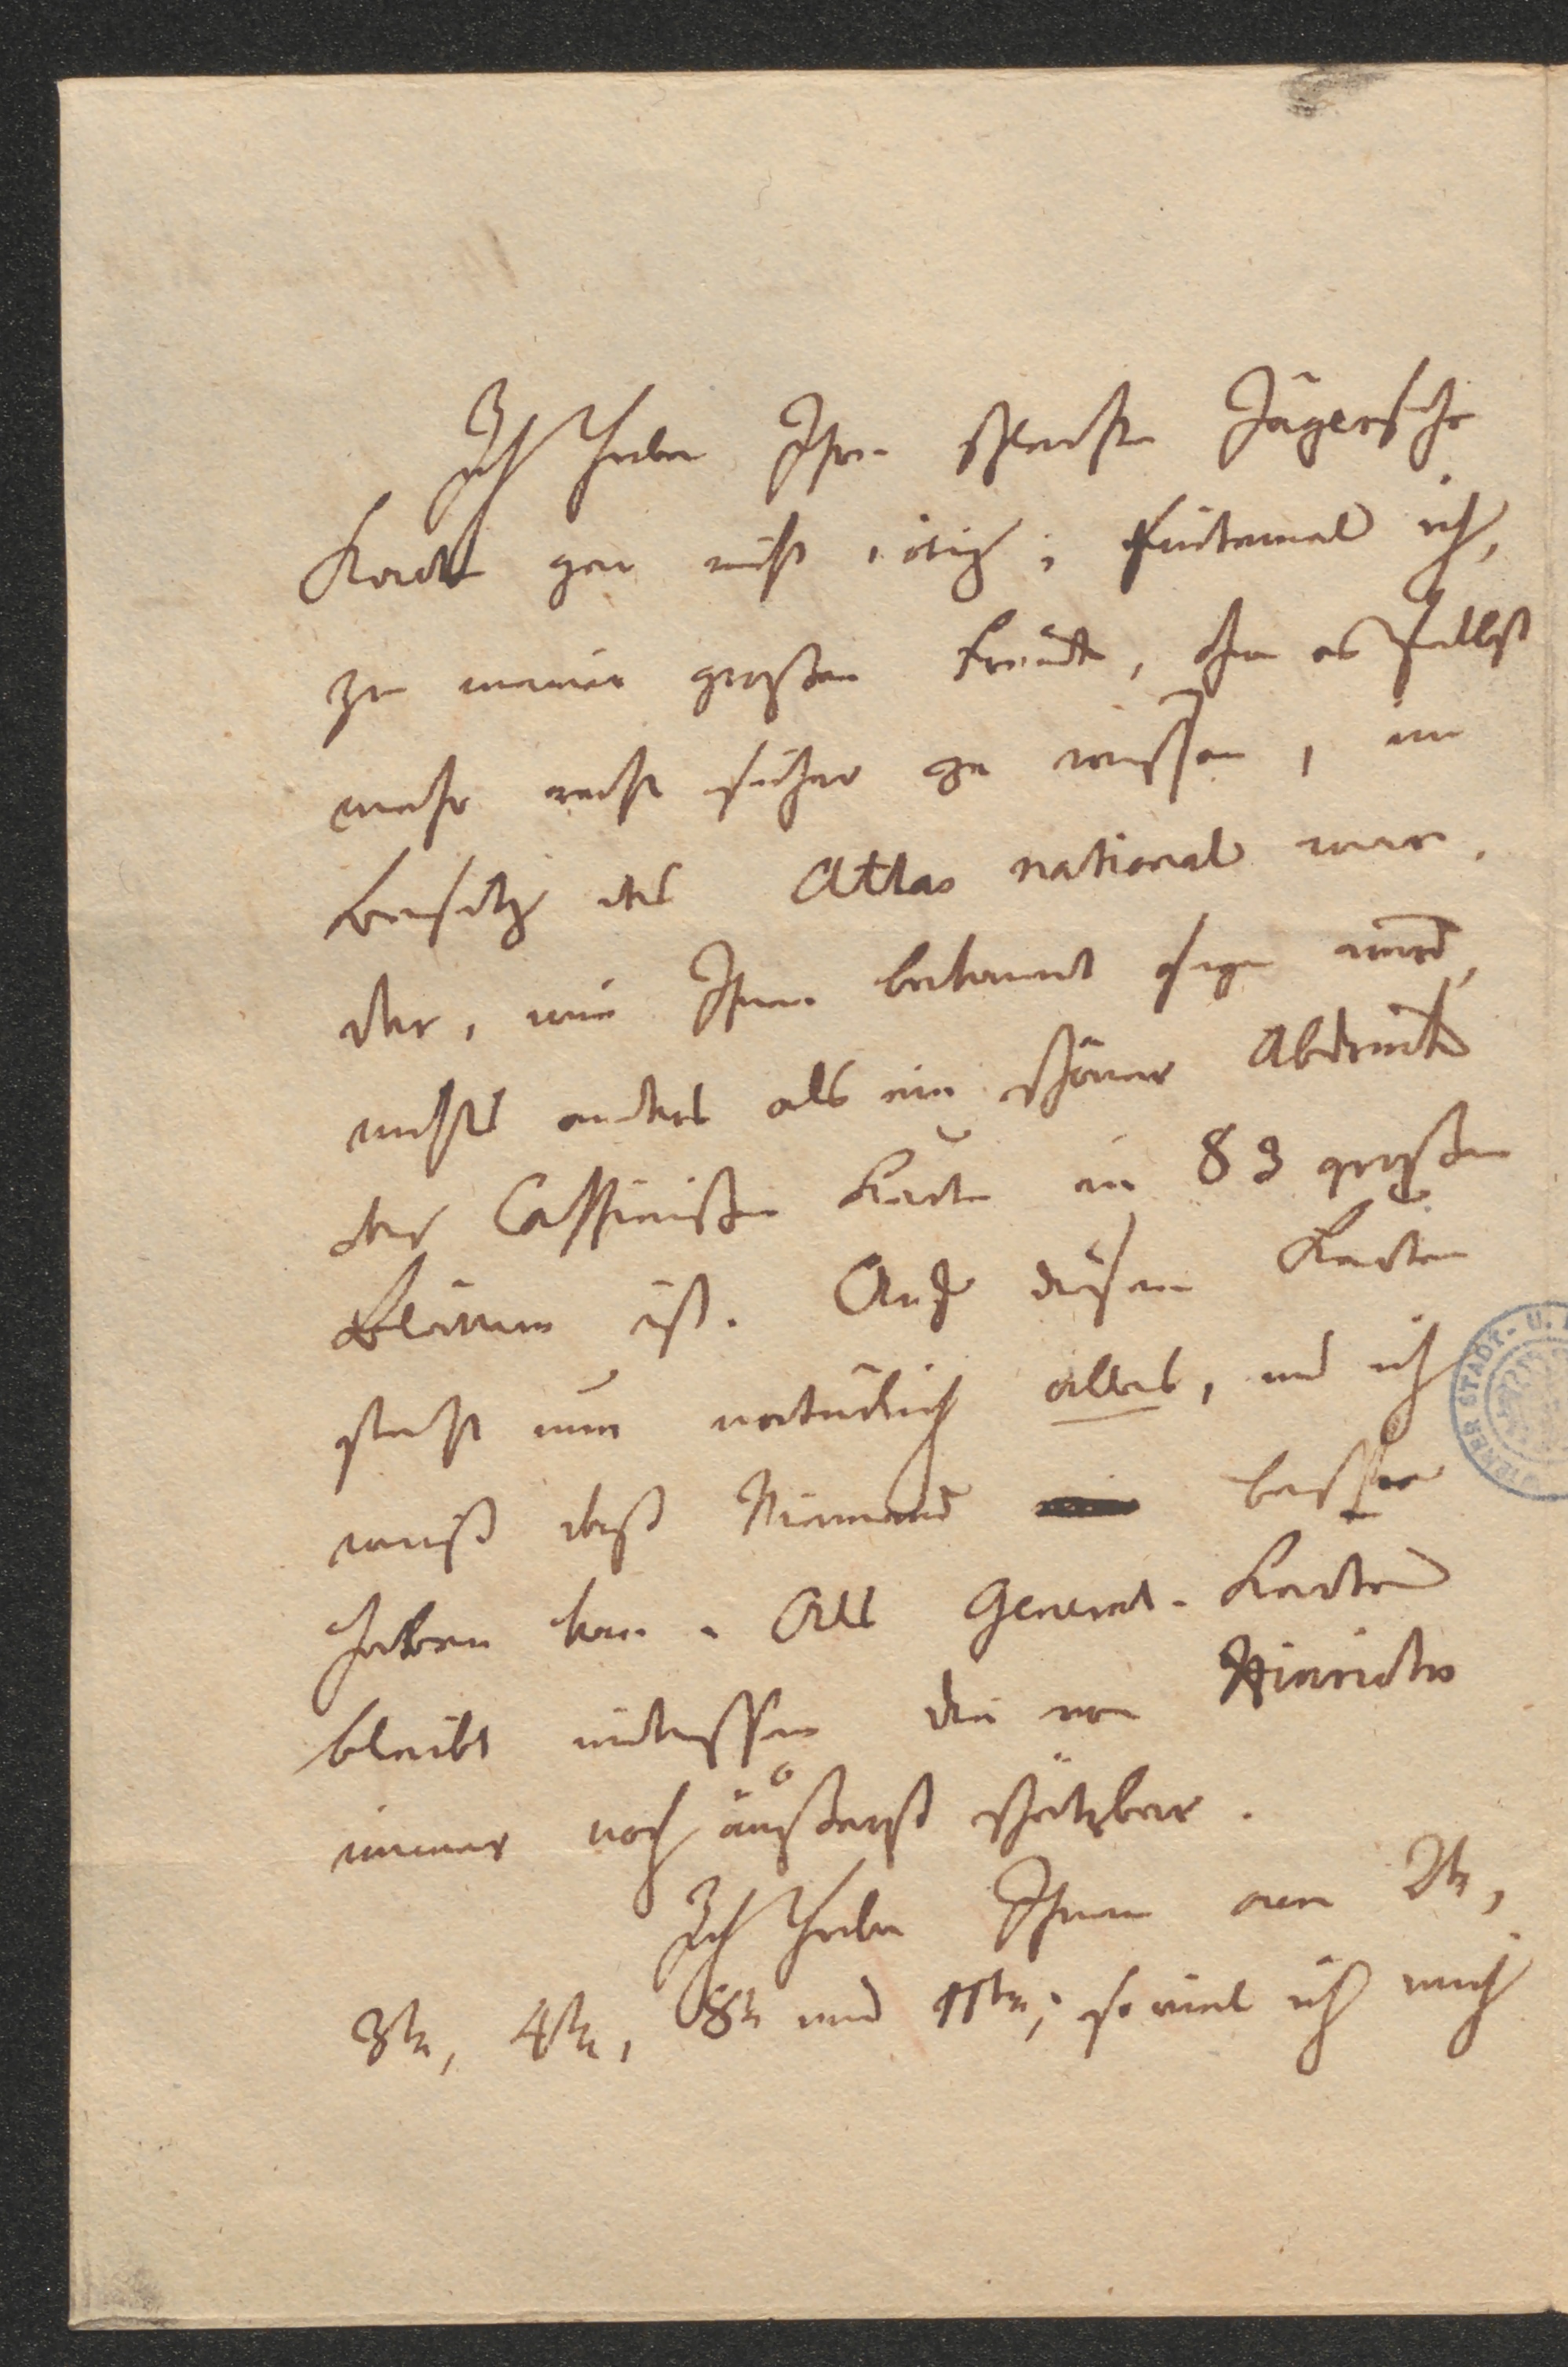 Ich habe Ihre schlechte Jägersche
Karte gar nicht nötig; sintemal ich,
zu meiner großen Freude, ohne es selbst
mehr recht sicher zu wissen, im
Besitz des Atlas national war.
der, wie Ihnen bekannt seyn wird,
nichts anders als ein schöner Abdruck
der Cassinischen Karte in 83 großen
Blättern ist. Auf diesen Karten
steht nun natürlich alles, und ich
weiß daß Niemand bessere
haben kan. Als General-Karte
bleibt indessen die von Hinrichs
immer noch äußerst schätzbar.
Ich habe Ihnen am 2tn,
3tn, 4tn, 8tn und 11tn, so viel ich mich
WIENER STADT- U.